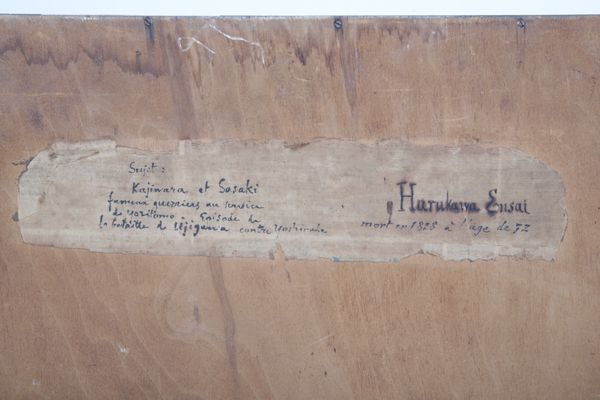 Sujet :
Kajiwara et Sasaki
fameux guerriers au service
de Yoritomo. Episode de
la bataille de Ujigawa contre Yoshinaka.
Harukawa Ensai
mort en 1828 à l'âge de 72